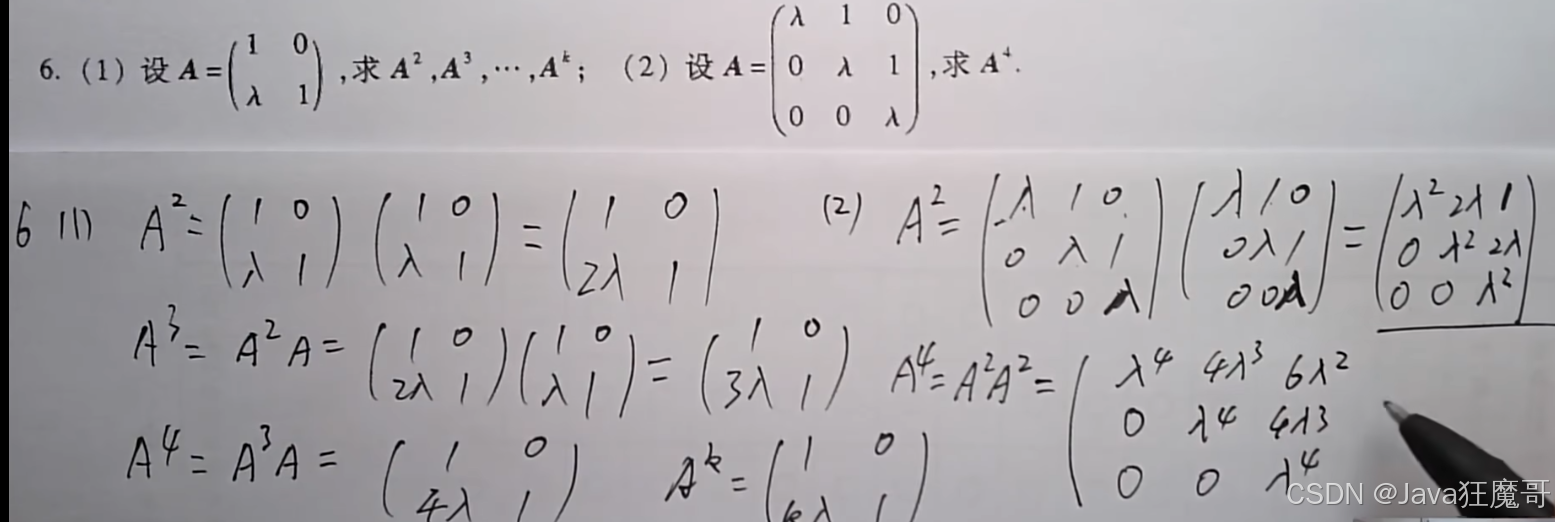 6. (1) 设 A = (1 0; λ 1), 求 A², A³, ⋯, Aᵏ; (2) 设 A = (λ 1 0; 0 λ 1; 0 0 λ), 求 A⁴.
6 (1) A² = (1 0; λ 1) (1 0; λ 1) = (1 0; 2λ 1)
A³ = A²A = (1 0; 2λ 1) (1 0; λ 1) = (1 0; 3λ 1)
A⁴ = A³A = (1 0; 4λ 1) Aᵏ = (1 0; kλ 1)
(2) A² = (λ 1 0; 0 λ 1; 0 0 λ) (λ 1 0; 0 λ 1; 0 0 λ) = (λ² 2λ 1; 0 λ² 2λ; 0 0 λ²)
A⁴ = A²A² = (λ⁴ 4λ³ 6λ²; 0 λ⁴ 4λ3; 0 0 λ⁴
CSDN @Java狂魔哥